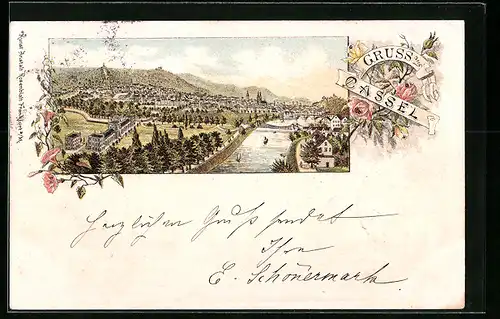 GRUSS aus
CASSEL
Herzlichen Gruß sendet
Ihr
E. Schönermark